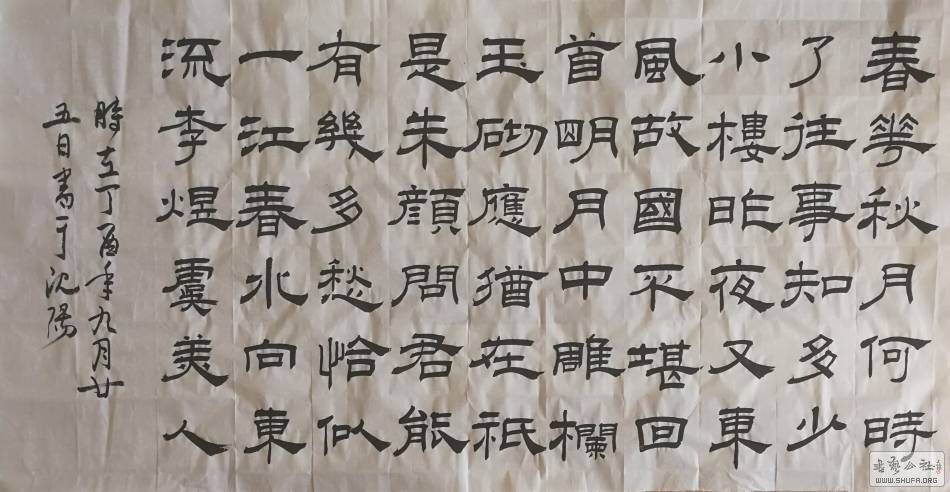 春華秋月何時
了往事知多少
小樓昨夜又東
風故國不堪回
首明月中雕欄
玉砌應猶在祇
是朱顏問君能
有幾多愁恰似
一江春水向東
流李煜虞美人
時在丁酉年九月廿
五日書于沈陽
書藝公社
WWW.SHUFA.ORG